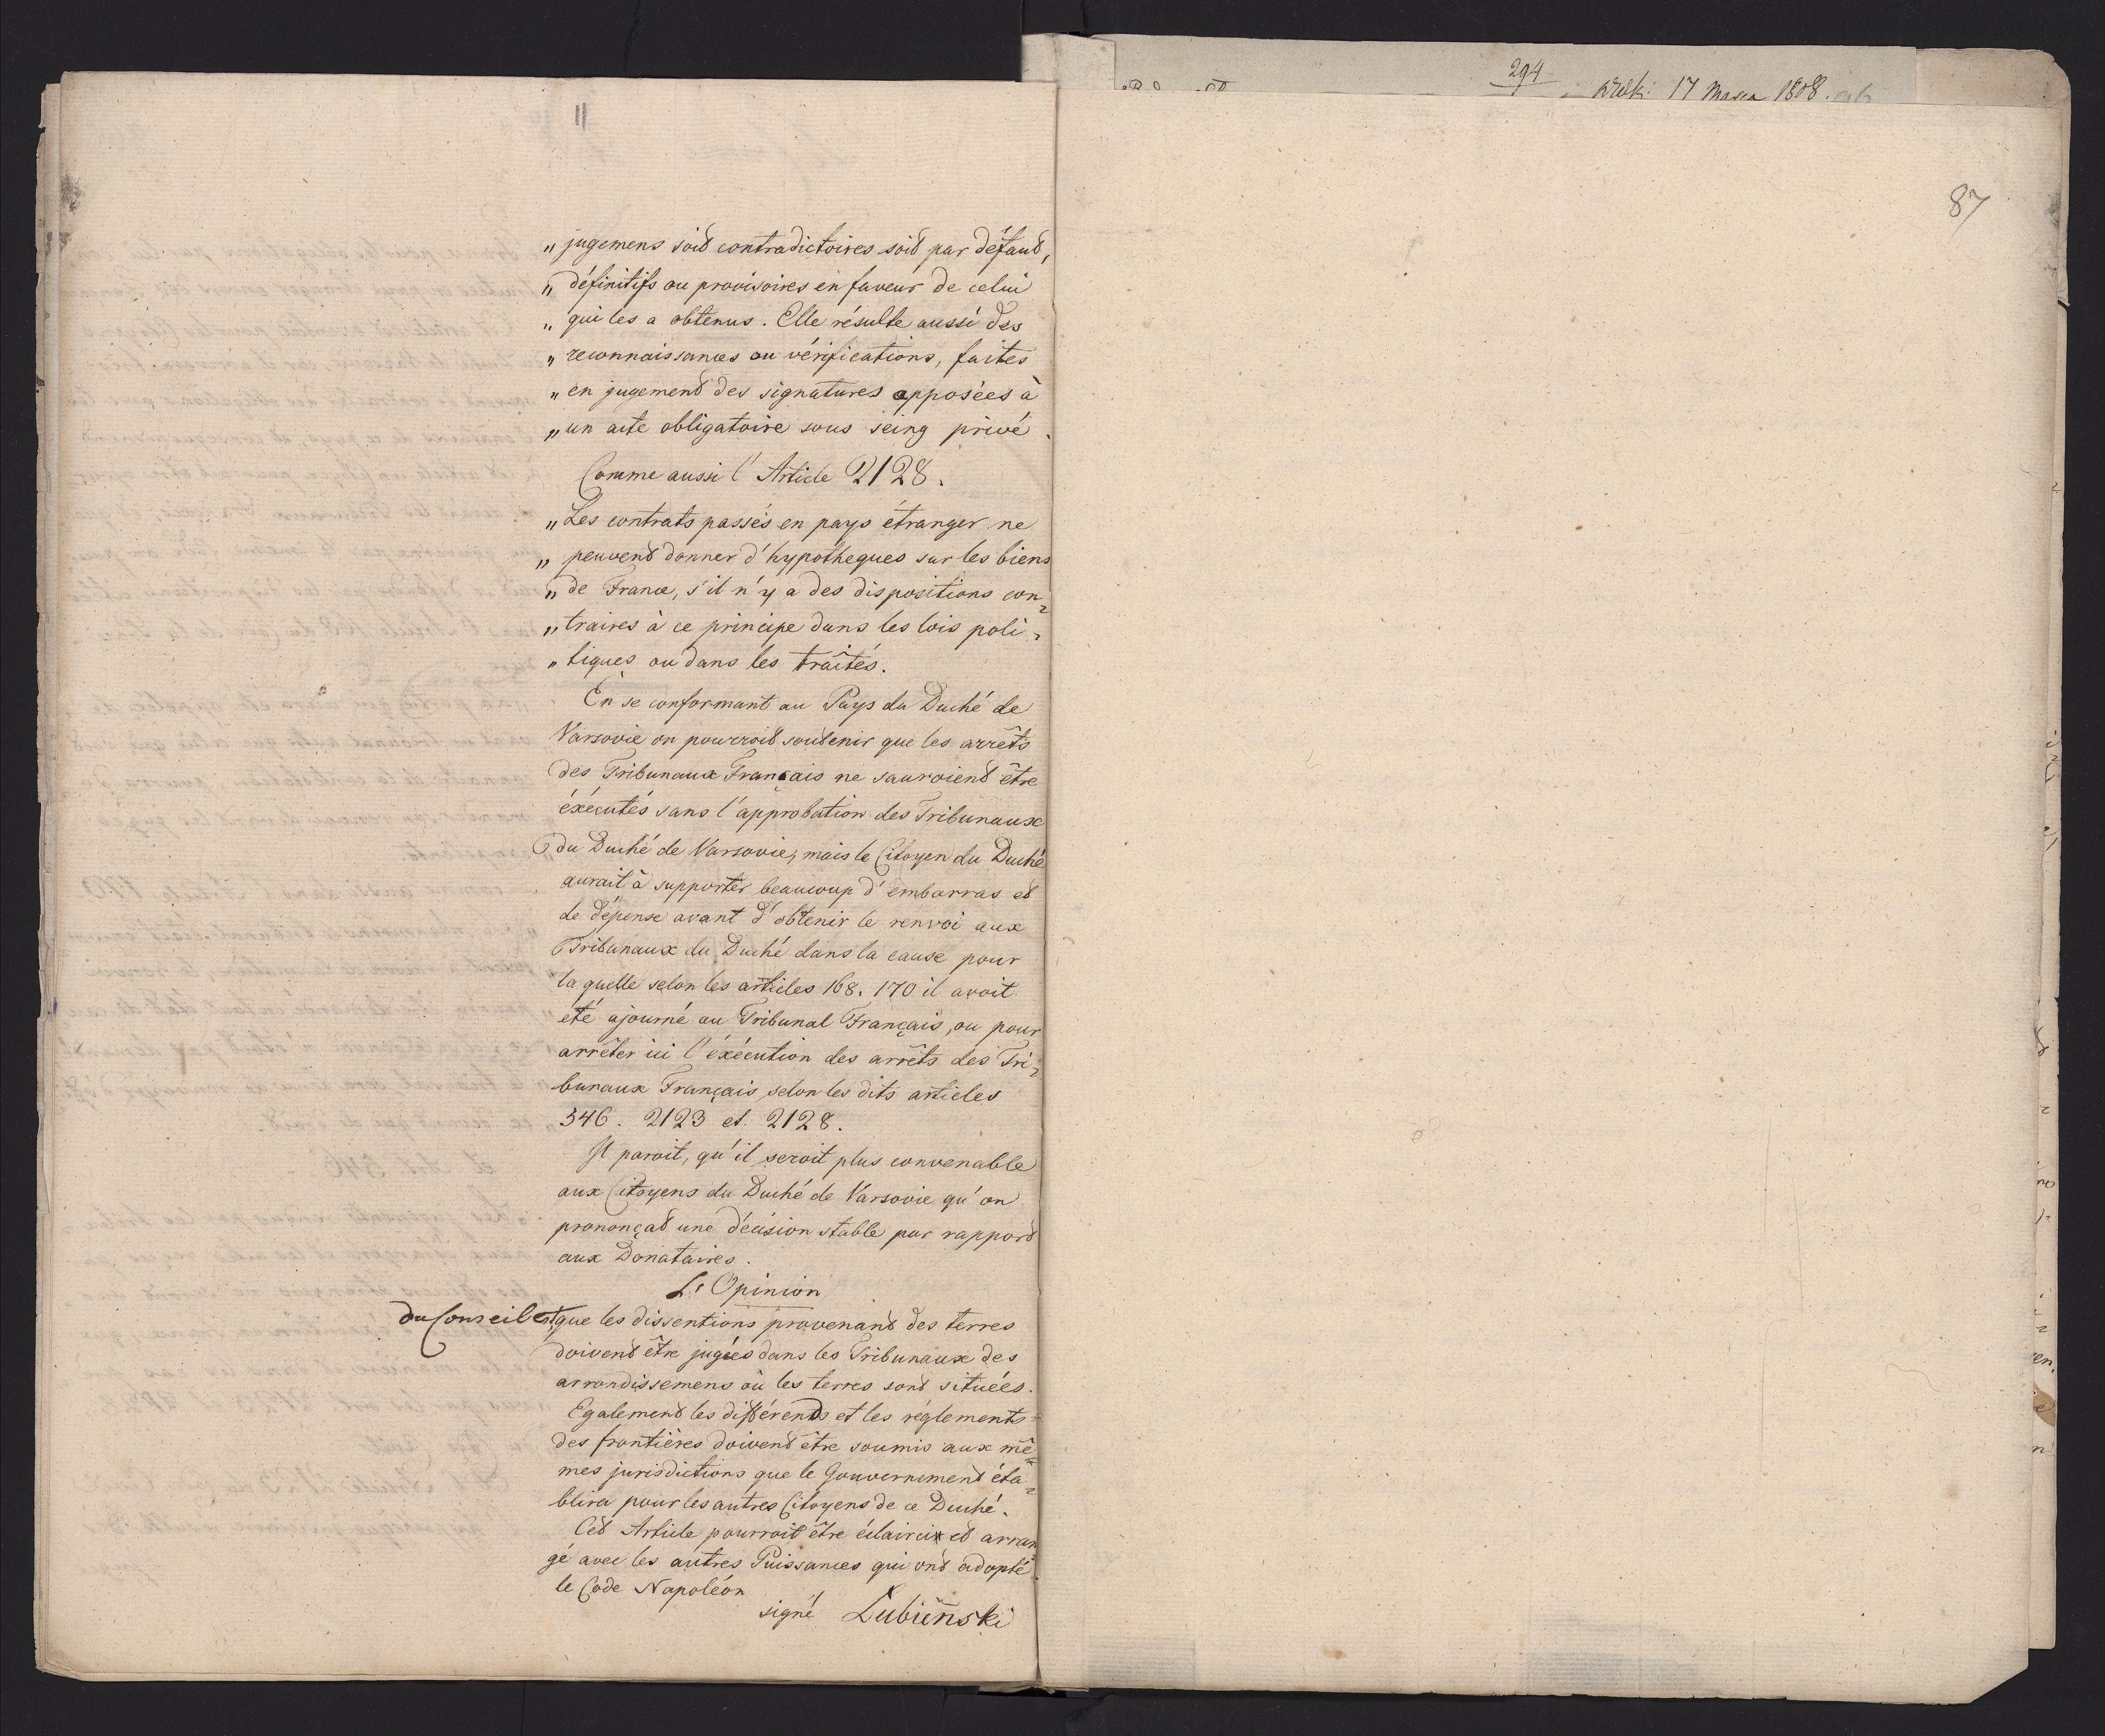 11
„ jugemens soit contradictoires soit par défaut,
„ définitifs ou provisoires en faveur de celui
„ qui les a obtenus. Elle résulte aussi des
„ reconnaissances ou vérifications, faites
„ en jugement des signatures apposées à
„ un acte obligatoire sous seing privé.
Comme aussi l'Article 2128.
„ Les contrats passés en pays étranger ne
„ peuvent donner d'hypotheques sur les biens
„ de France, s'il n'y a des dispositions con=
„ traires à ce principe dans les lois poli=
„ tiques ou dans les traîtés.
En se conformant au Pays du Duché de
Varsovie on pourroit soutenir que les arrêts
des Tribunaux Français ne sauroient être
éxécutés sans l'approbation des Tribunaux
du Duché de Varsovie, mais le Citoyen du Duché
aurait à supporter beaucoup d'embarras et
de dépense avant d'obtenir le renvoi aux
Tribunaux du Duché dans la cause pour
la quelle selon les articles 168. 170 il avoit
été ajourné au Tribunal Français, ou pour
arrêter ici l'éxécution des arrêts des Tri=
bunaux Français, selon les dits articles
546. 2123 et. 2128.
Il paroit, qu'il seroit plus convenable
aux Citoyens du Duché de Varsovie qu'on
prononçat une décision stable par rapport
aux Donataires.
L'Opinion
du Conseil est, que les dissentions provenant des terres
doivent être jugées dans les Tribunaux des
arrondissemens où les terres sont situées.
Egalement les différends et les réglements
des frontières doivent être soumis aux mê=
mes jurisdictions que le Gouvernement éta=
blira pour les autres Citoyens de ce Duché.
Cet Article pourroit être éclairci et arran=
gé avec les autres Puissances qui ont adopté
le Code Napoléon
signé Lubieński
294
17 Marca 1808.
87